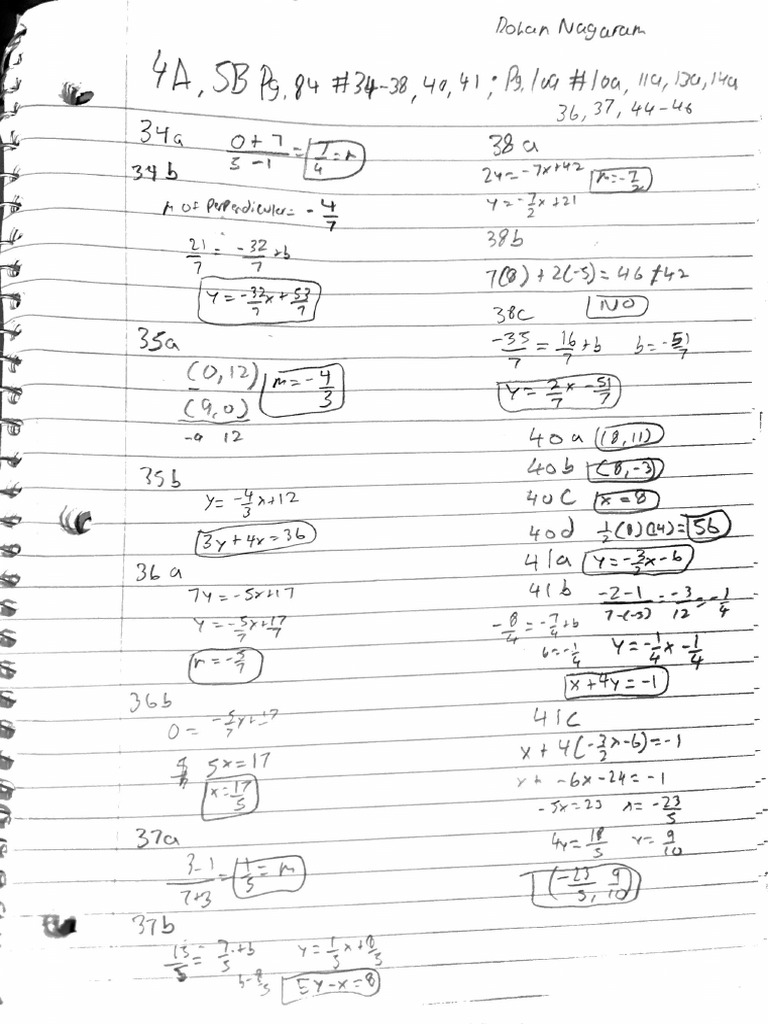 Rohan Nagaram
4A, 5B Pg. 84 #34-38, 40, 41; Pg. 109 #10a, 11a, 13a, 14a
36, 37, 44-46
34a
0+7/5-1 = 7/4 = m
34b
m of perpendicular = -4/7
21/7 = -32/7 + b
y = -32/7x + 53/7
35a
(0,12) m = -4/3
(9,0)
-9 12
35b
y = -4/3x + 12
3y + 4x = 36
36a
7y = -5x+17
y = -5/7x + 17/7
m = -5/7
36b
0 = -5/7x + 17
5x = 17
x = 17/5
37a
3-1/7+3 = 1/5 = m
37b
15/5 = 7/5 + b y = 1/5x + 8/5
b = 8/5 5y-x=8
38a
2y = -7x+42 m = -7/2
y = -7/2x + 21
38b
7(8) + 2(-5) = 46 ≠ 42
NO
38c
-35/7 = 16/7 + b b = -51/7
y = 2/7x - 51/7
40a (8,11)
40b (8,-3)
40c x = 8
40d 1/2(8)(14) = 56
41a y = -3/2x - 6
41b -2-1/7-(-5) = -3/12 = -1/4
-8/4 = -7/4 + b
b = -1/4 y = -1/4x - 1/4
x + 4y = -1
41c
x + 4(-3/2x-6) = -1
x + -6x - 24 = -1
-5x = 23 x = -23/5
4y = 18/5 y = 9/10
(-23/5, 9/10)